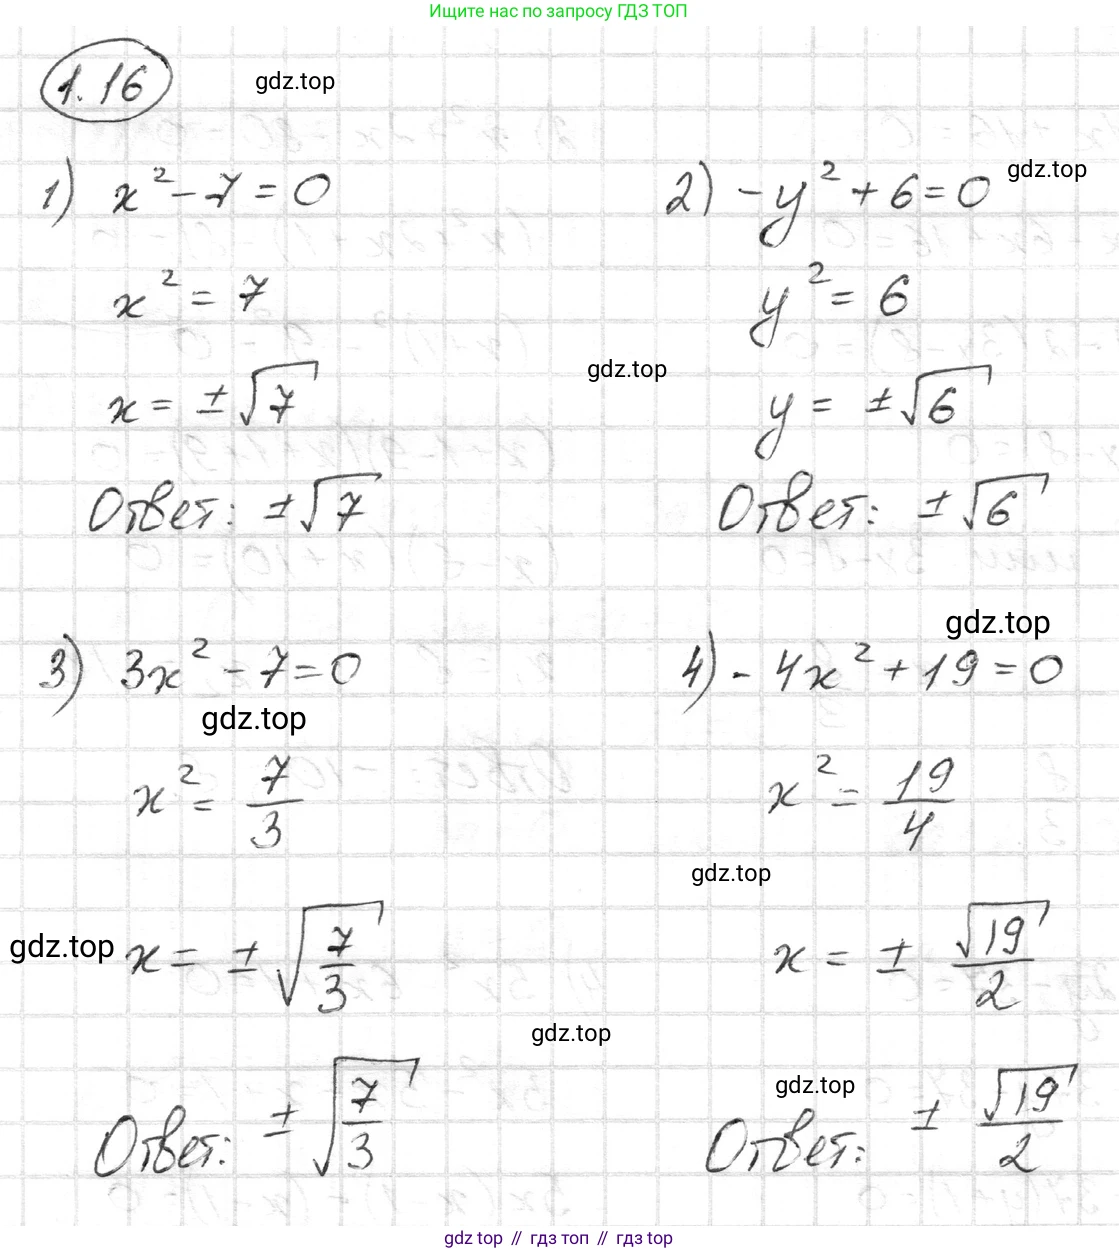 Ищите нас по запросу ГДЗ ТОП
1.16
gdz.top
1) x² - 7 = 0
x² = 7
x = ±√7
Ответ: ±√7
2) -y² + 6 = 0
gdz.top
y² = 6
gdz.top
y = ±√6
Ответ: ±√6
3) 3x² - 7 = 0
gdz.top
x² = 7/3
gdz.top
x = ±√(7/3)
gdz.top
Ответ: ±√(7/3)
gdz.top
4) -4x² + 19 = 0
x² = 19/4
gdz.top
x = ± √19/2
gdz.top
Ответ: ± √19/2
gdz top // гдз топ // гдз top